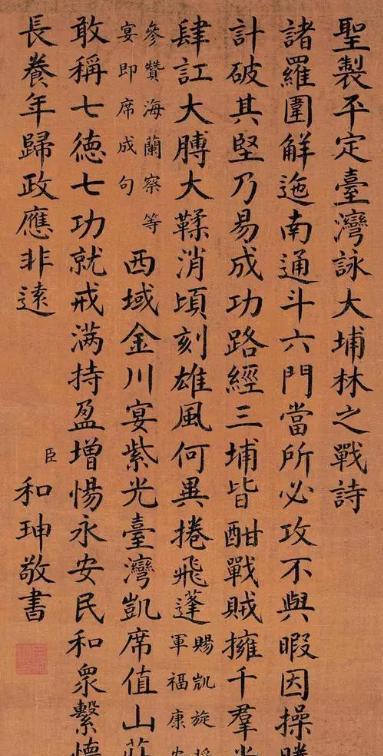 聖製平定臺灣詠大埔林之戰詩
諸羅圍解迤南通斗六門當所必攻不與暇因操勝
計破其堅乃易成功路經三埔皆酣戰賊擁千羣
肆訌大膊大鞣消頃刻雄風何異捲飛蓬
賜凱旋
軍福康安
參贊海蘭察等
宴即席成句
西域金川宴紫光臺灣凱席值山莊
敢稱七德七功就戒滿持盈增惕永安民和衆繫懷
長養年歸政應非遠
臣和珅敬書